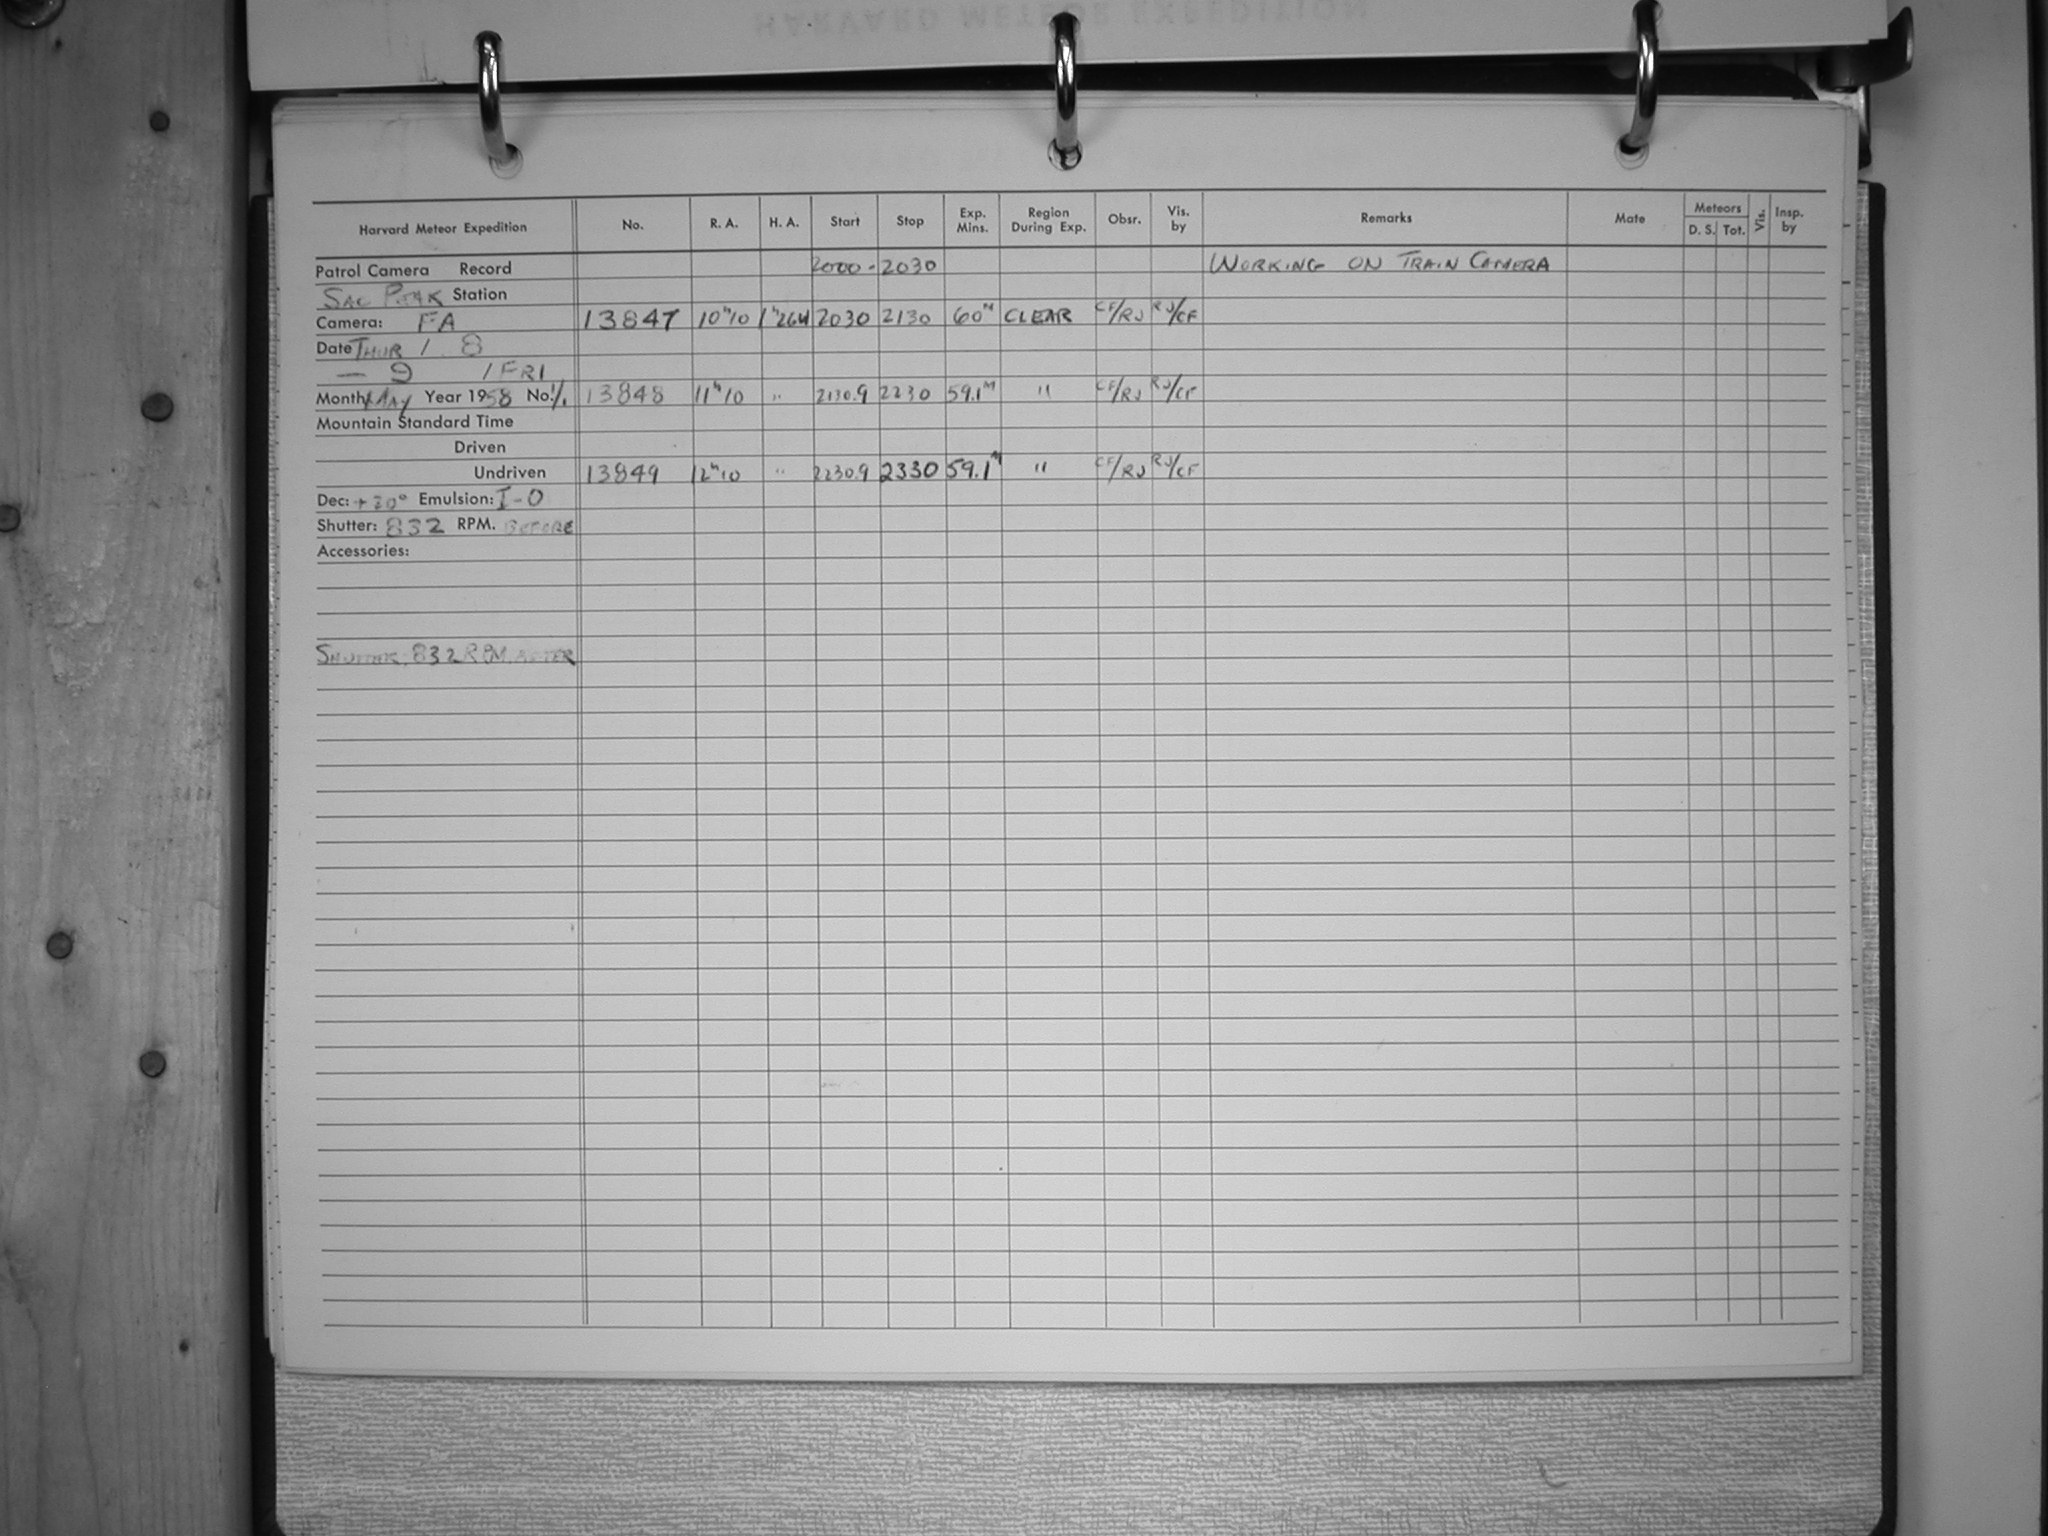 HARVARD METEOR EXPEDITION
Harvard Meteor Expedition No. R. A. H. A. Start Stop Exp. Mins. Region During Exp. Obsr. Vis. by Remarks Mate Meteors D. S. Tot. Vis. Insp. by
Patrol Camera Record 2000 - 2030 WORKING ON TRAIN CAMERA
SAC PEAK Station
Camera: FA 13847 10h10 1h26W 2030 2130 60M CLEAR CF/RJ RJ/CF
Date THUR / 8
— 9 / FRI
Month MAY Year 1958 No. 1/1 13848 11h10 " 2130.9 2230 59.1M " CF/RJ RJ/CF
Mountain Standard Time
Driven
Undriven 13849 12h10 " 2230.9 2330 59.1M " CF/RJ RJ/CF
Dec: +20° Emulsion: I-O
Shutter: 832 RPM. BEFORE
Accessories:
SHUTTER 832 RPM. AFTER